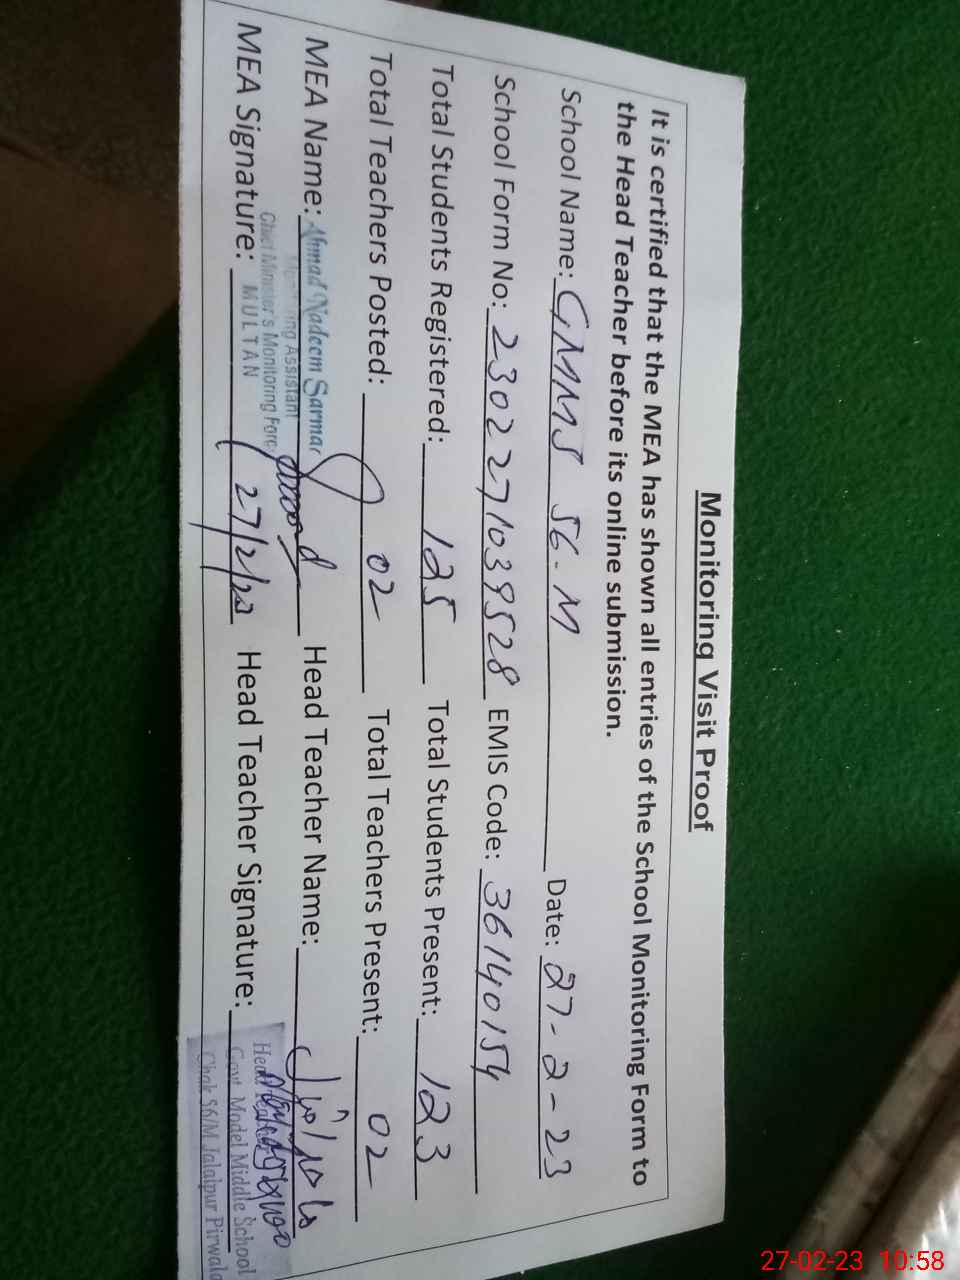 Monitoring Visit Proof
It is certified that the MEA has shown all entries of the School Monitoring Form to
the Head Teacher before its online submission.
School Name: GMMS 56-M Date: 27-2-23
School Form No: 2302271039528 EMIS Code: 36140154
Total Students Registered: 125 Total Students Present: 123
Total Teachers Posted: 02 Total Teachers Present: 02
MEA Name: Ahmad Nadeem Sarmad Head Teacher Name:
Monitoring Assistant
Chief Minister's Monitoring Force
MULTAN
MEA Signature: 27/2/23 Head Teacher Signature:
Head Teacher
Govt. Model Middle School
Chak 56/M Jalalpur Pirwala
27-02-23 10:58